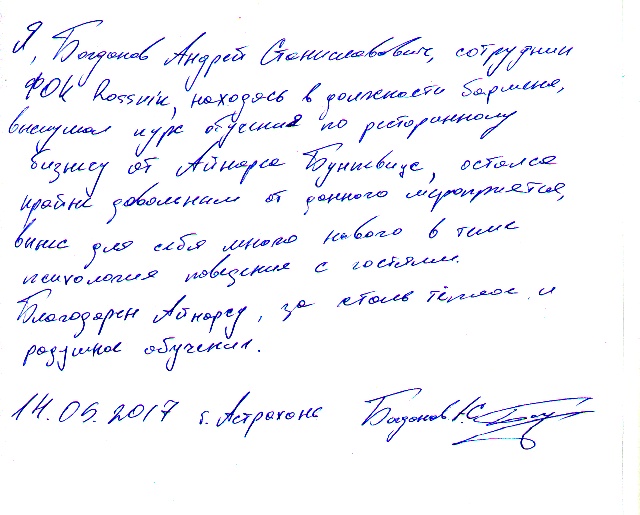 Я, Богданов Андрей Станиславович, сотрудник
ФОК Rossvik, находясь в должности бармена,
выслушал курс обучения по ресторанному
бизнесу от Айнарса Бунквица, остался
крайне довольным от данного мероприятия,
вынес для себя много нового в теме
психология поведение с гостями.
Благодарен Айнарсу, за столь тёплое и
радушное обучение.
14.05.2017 г. Астрахань Богданов А.С.